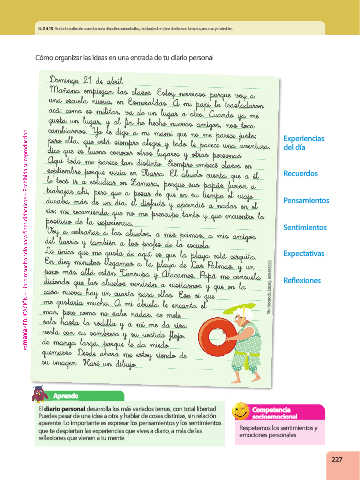 Cómo organizar las ideas en una entrada de tu diario personal
Domingo 21 de abril
Mañana empiezan las clases. Estoy nervioso porque voy a
una escuela nueva en Esmeraldas. A mi papá lo trasladaron
acá; como es militar, va de un lugar a otro. Cuando ya me
gusta un lugar, y al fin he hecho nuevos amigos, nos toca
cambiarnos. Yo le dije a mi mami que no me parece justo;
pero ella, que está siempre alegre y todo le parece una aventura,
dice que es bueno conocer otros lugares y otras personas.
Aquí todo me parece tan distinto. Siempre empecé clases en
septiembre porque vivía en Ibarra. El abuelo cuenta que a él
le tocó ir a estudiar en
trabajar ahí; pero que a pesar de que en su tiempo el viaje
duraba más de un día, él disfrutó y aprendió a nadar en el
río; me recomienda que no me preocupe tanto y que encuentre lo
positivo de la experiencia.
Voy a extrañar a los abuelos, a mis primos, a mis amigos
del barrio y también a los profes de la escuela.
Lo único que me gusta de aquí es que la playa está cerquita.
En diez minutos llegamos a la playa de Las Palmas, y un
poco más allá están Tonsupa y Atacames. Papá me consuela
diciendo que los abuelos vendrán a visitarnos y que en la
casa nueva hay un cuarto para ellos. Eso sí que
me gustaría mucho. A mi abuela le encanta el
mar, pero como no sabe nadar, se mete
solo hasta la rodilla y a mí me da risa
verla con su sombrero y su vestido flojo
de manga larga, porque le da miedo
quemarse. Desde ahora me estoy riendo de
su imagen. Haré un dibujo.
Experiencias
del día
Recuerdos
Pensamientos
Sentimientos
Expectativas
Reflexiones
Aprendo
El diario personal desarrolla los más variados temas, con total libertad.
Puedes pasar de una idea a otra y hablar de cosas distintas, sin relación
aparente. Lo importante es expresar los pensamientos y los sentimientos
que te despiertan las experiencias que vives a diario, a más de las
reflexiones que vienen a tu mente.
Competencia
socioemocional
Respetemos los sentimientos y
emociones personales
227